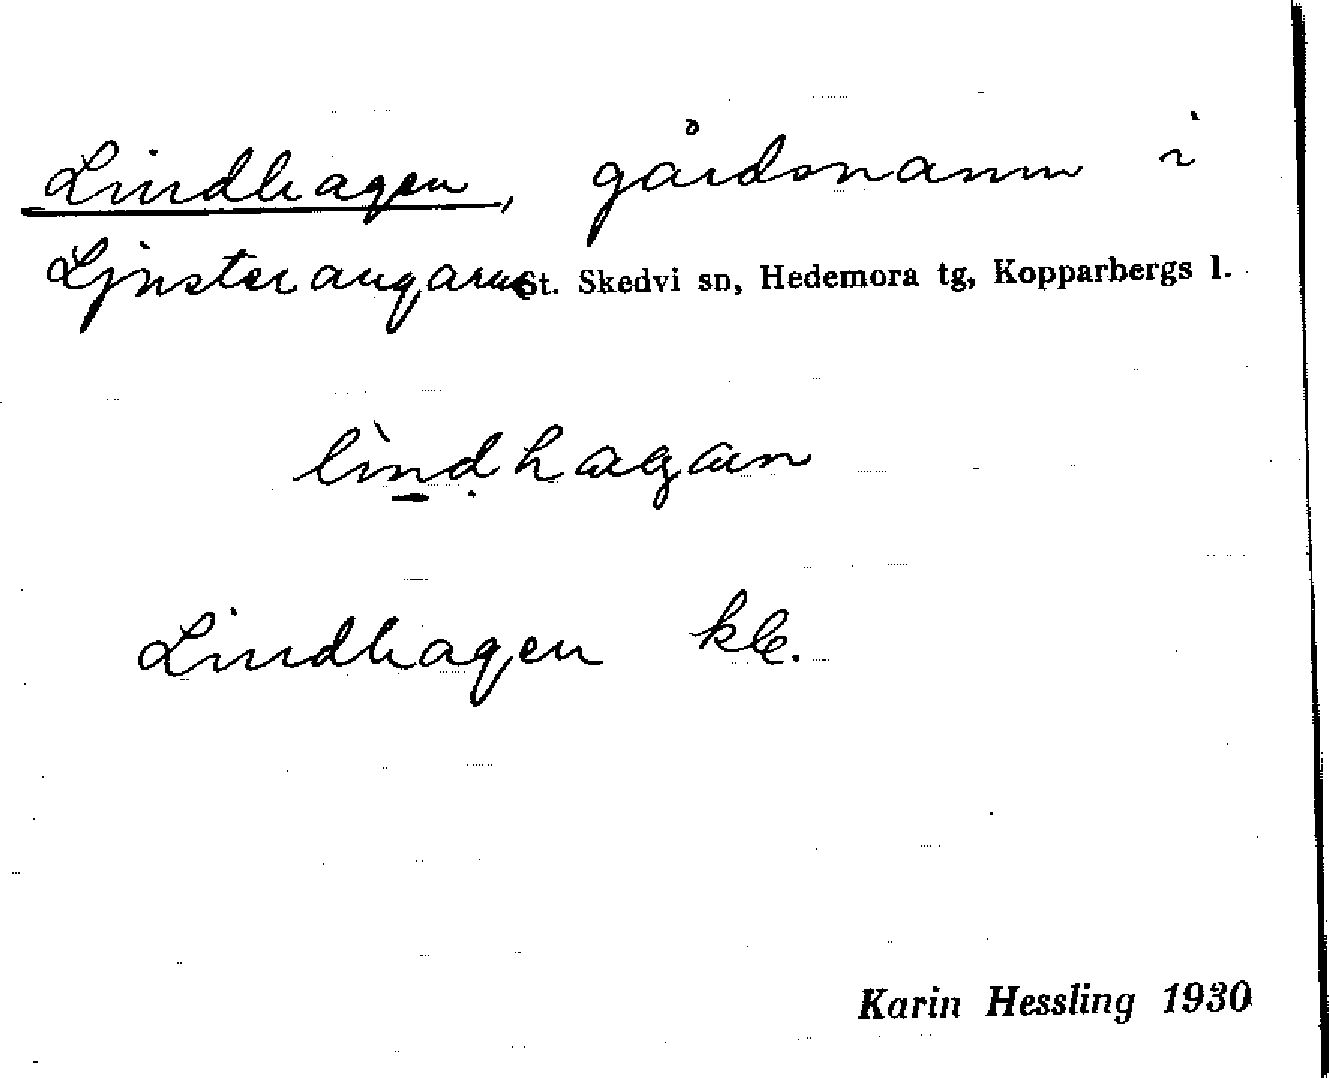 Lindhagen, gårdsnamn i
Ljusterangarne St. Skedvi sn, Hedemora tg, Kopparbergs l.
lìndhagan
Lindhagen kle.
Karin Hessling 1930